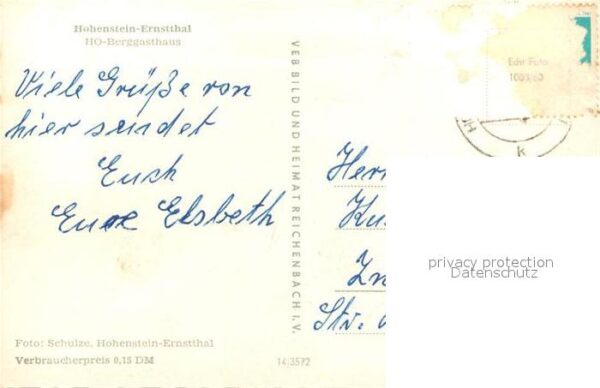 Hohenstein-Ernstthal
HO-Berggasthaus
Viele Grüße von
hier sendet
Euch
Eure Elsbeth
Foto: Schulze, Hohenstein-Ernstthal
Verbraucherpreis 0,15 DM
14/3572
VEB BILD UND HEIMAT REICHENBACH I. V.
Echt Foto
k
Str.
privacy protection
Datenschutz